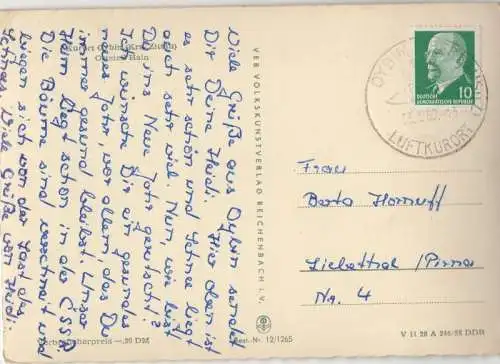 Kurort Oybin (Krs. Zittau)
Ortsteil Hain
Viele Grüße aus Oybin sendet
Dir Deine Heidi. Hier oben ist
es sehr schön und Schnee liegt
auch sehr viel. Nun, wie bist
Du ins Neue Jahr gerutscht?
Ich wünsche Dir ein gesundes
neues Jahr, vor allem, das Du
immer gesund bleibst. Unser
Heim liegt schon in der ČSSR.
Die Bäume sind verschneit und
biegen sich von der Last des
Schnees. Viele Grüße von Heidi.
Verbraucherpreis —,20 DM
VEB VOLKSKUNSTVERLAG REICHENBACH i. V.
Best.-Nr. 12/1265
10
DEUTSCHE
DEMOKRATISCHE REPUBLIK
OYBIN
LUFTKURORT
Frau
Berta Hornuff
Liebethal / Pirna
Nr. 4
V 11 28 A
DDR